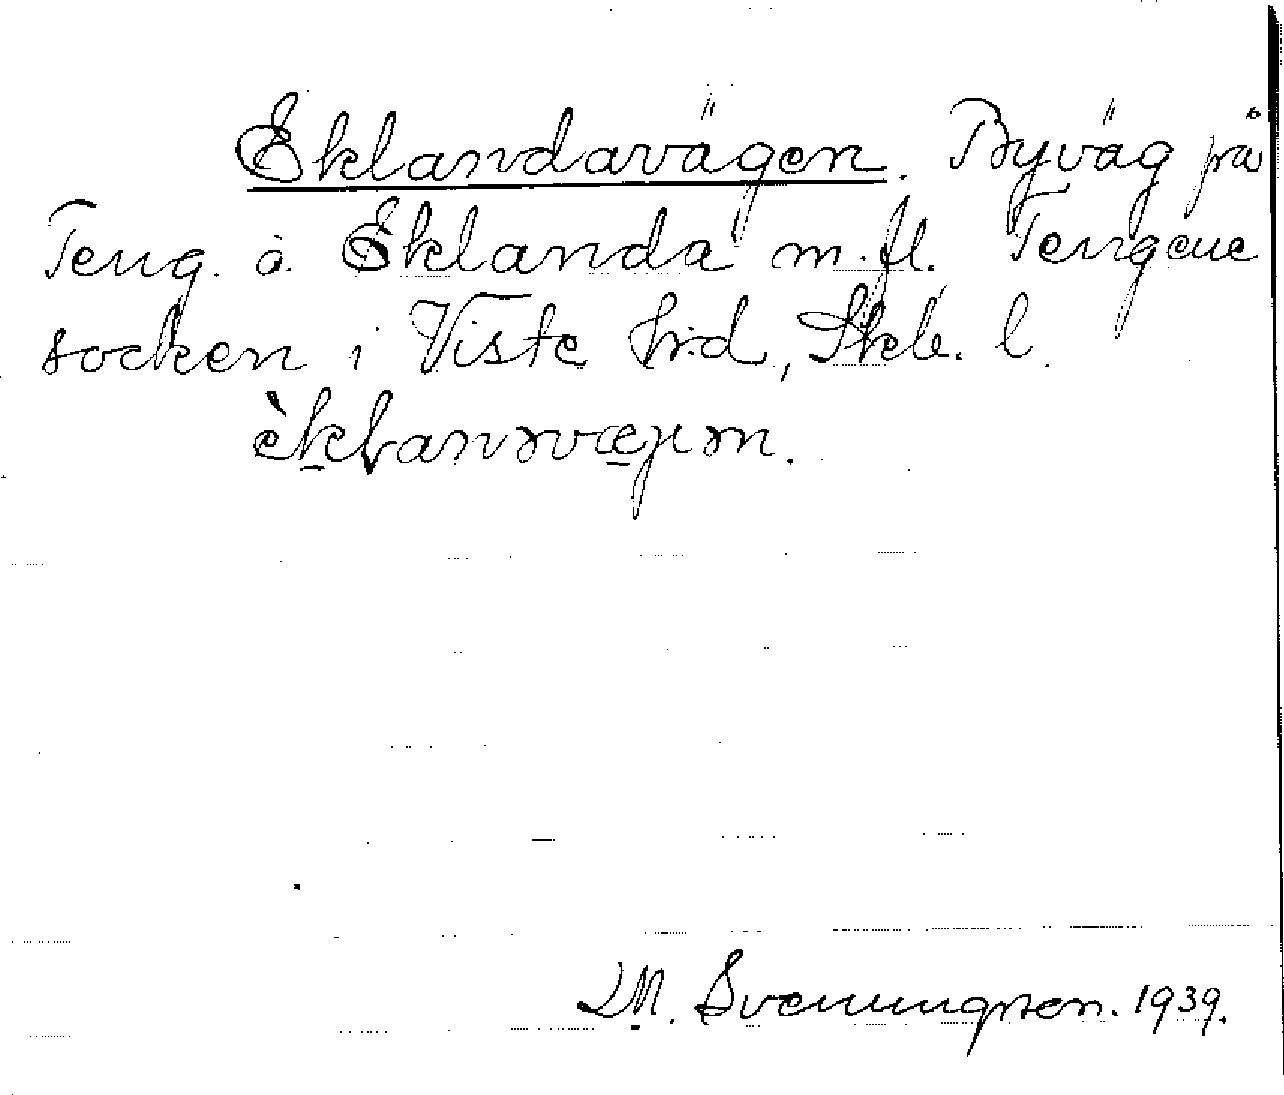 Eklandavägen. Byväg på
Teng. o. Eklanda m.fl. Tengene
socken i Viste hrd, Skb. l.
Svenningsson. 1939.